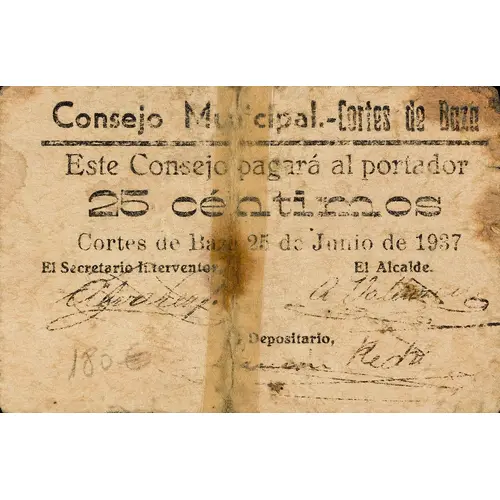 Consejo Municipal.-Cortes de Baza
Este Consejo pagará al portador
25 céntimos
Cortes de Baza 25 de Junio de 1937
El Secretario Interventor,
El Alcalde.
Depositario,
180 €